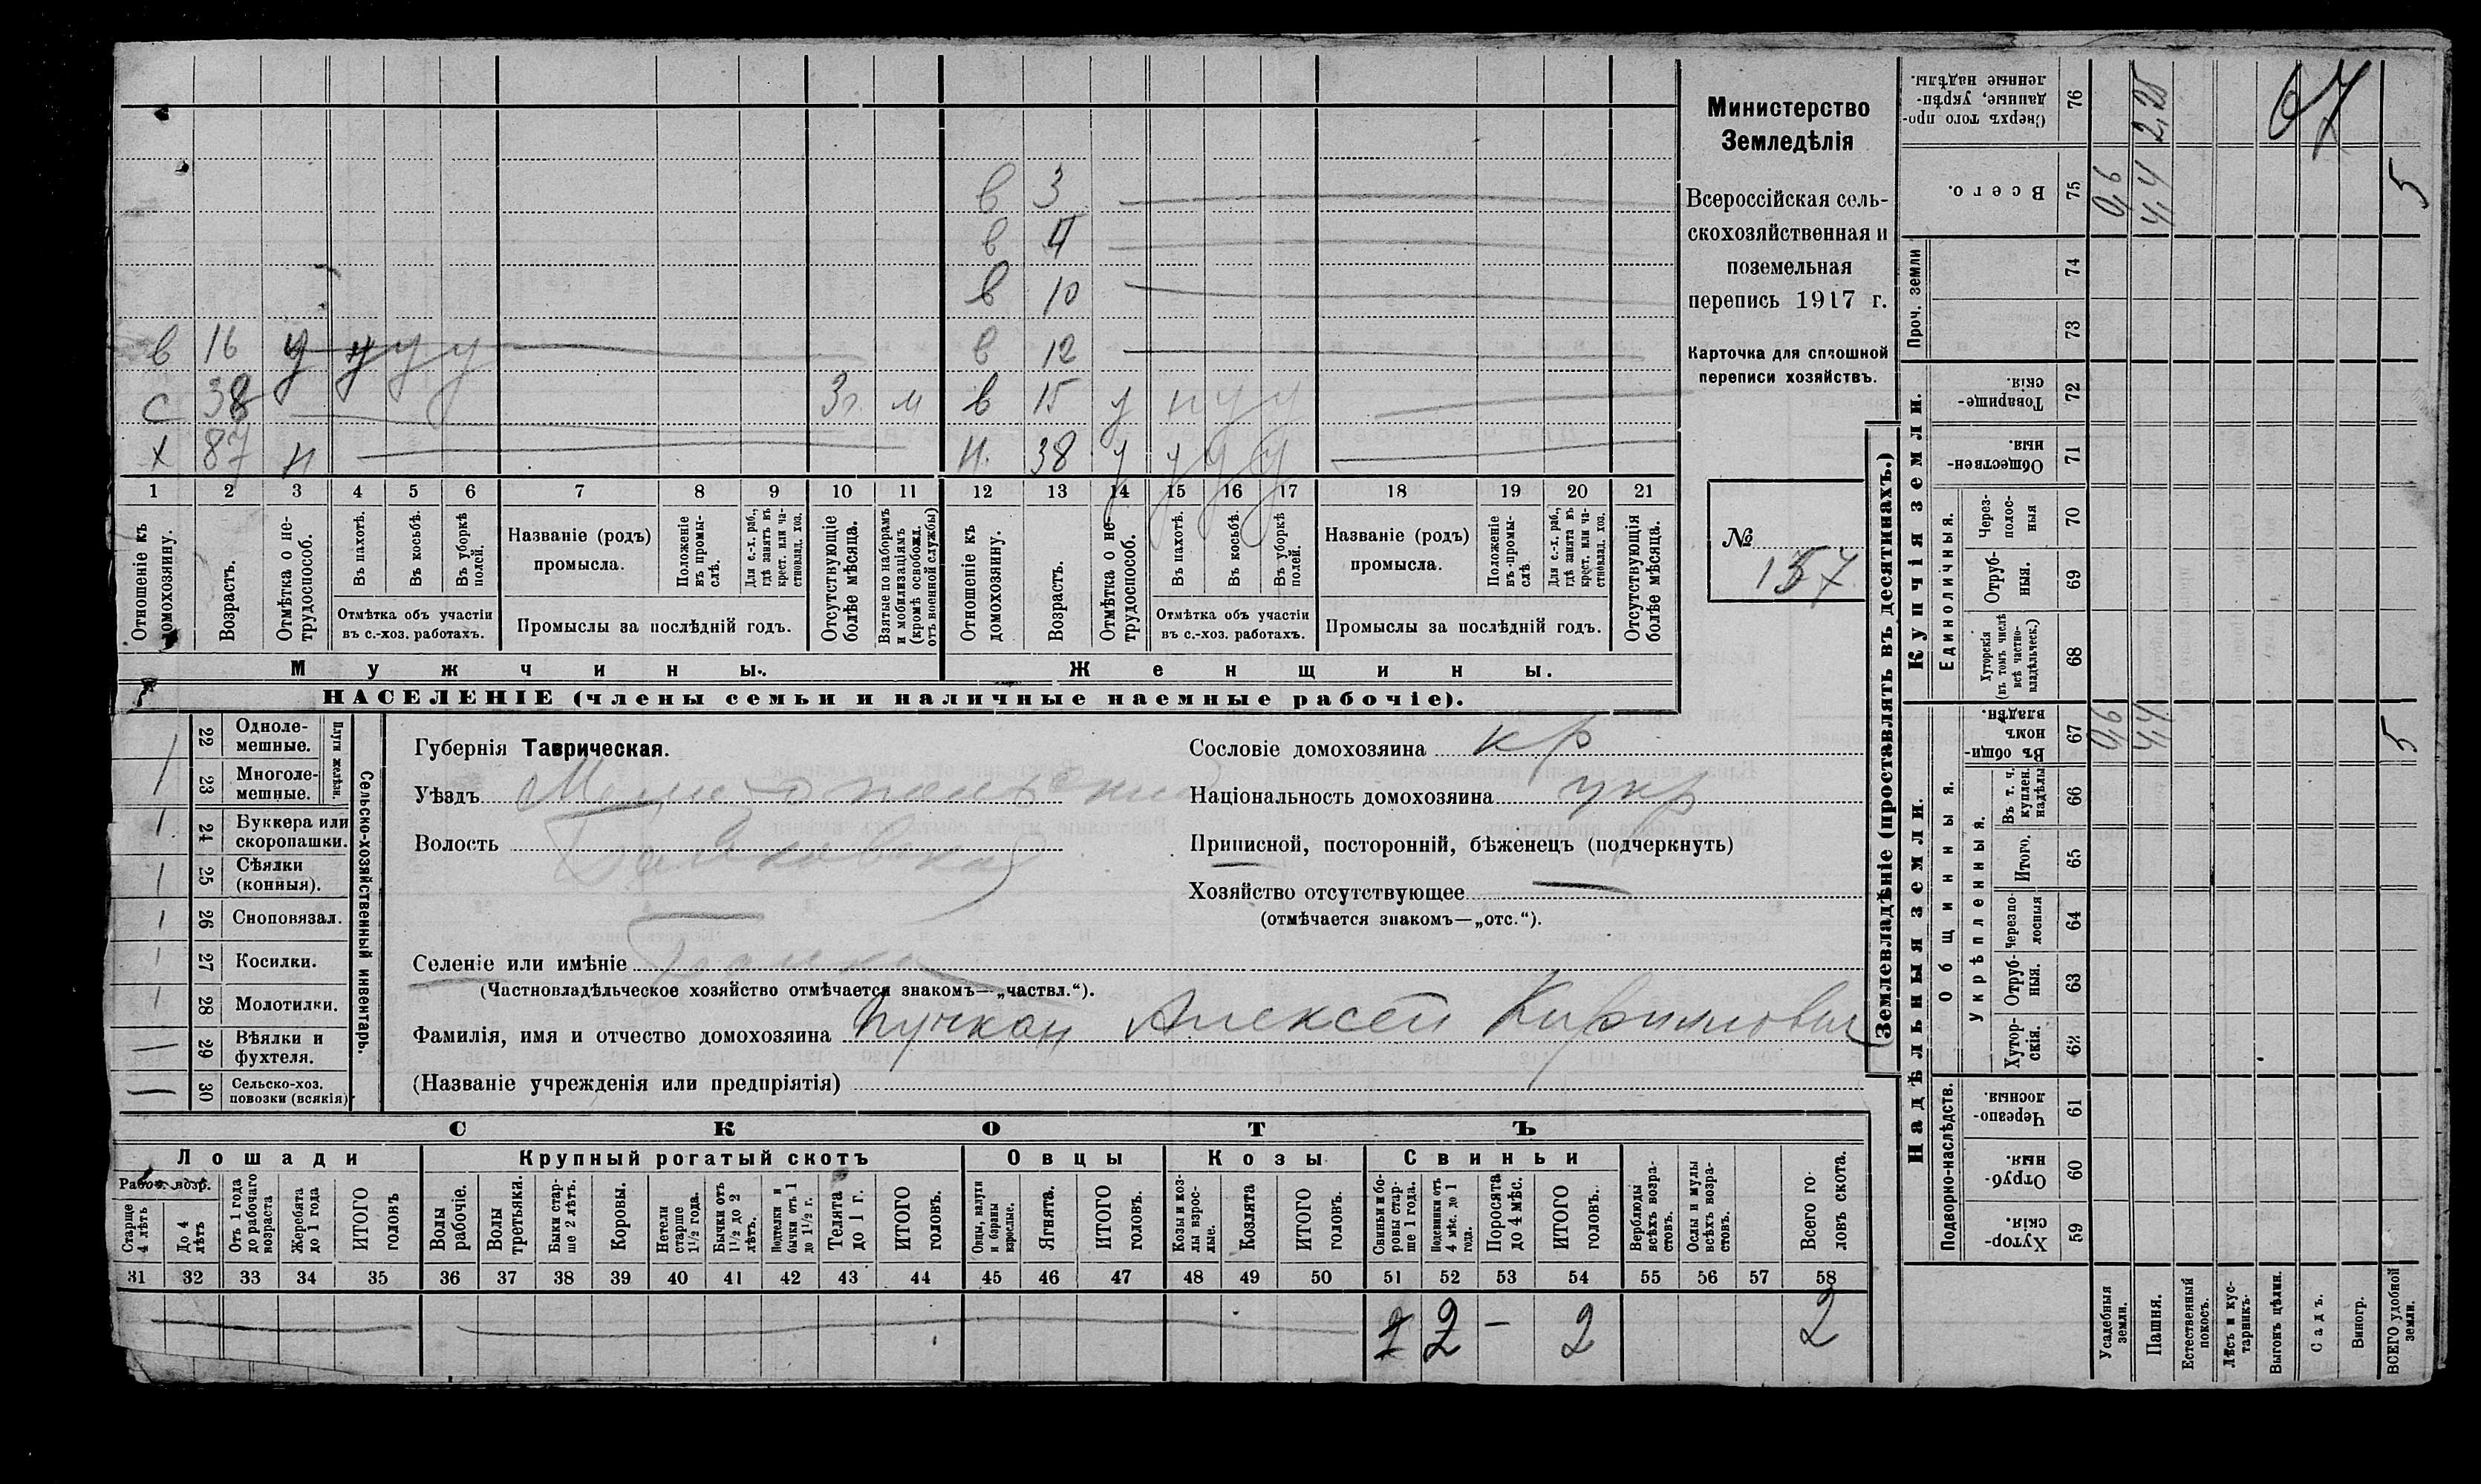 Министерство
Земледѣлія
Всероссійская сель-
скохозяйственная и
поземельная
перепись 1917 г.
Карточка для сплошной
переписи хозяйствъ.
№
157
в 3
в 4
в 10
в 16 у н у у
в 12
с 38 3 г. м
в 15 у н у у
х 87 н
н. 38 у у у у
1 2 3 4 5 6 7 8 9 10 11 12 13 14 15 16 17 18 19 20 21
Отношеніе къ домохозяину.
Возрастъ.
Отмѣтка о не-трудоспособ.
Въ пахотѣ.
Въ косьбѣ.
Въ уборкѣ полей.
Отмѣтка объ участіи
въ с.-хоз. работахъ.
Названіе (родъ)
промысла.
Положеніе въ промы-слѣ.
Для с.-х. раб., гдѣ занятъ въ крест. или ча-стновлад. хоз.
Промыслы за послѣдній годъ.
Отсутствующіе болѣе мѣсяца.
Взятые по наборамъ и мобилизаціямъ (кромѣ освобожд. отъ военной службы)
Отношеніе къ домохозяину.
Возрастъ.
Отмѣтка о не-трудоспособ.
Въ пахотѣ.
Въ косьбѣ.
Въ уборкѣ полей.
Отмѣтка объ участіи
въ с.-хоз. работахъ.
Названіе (родъ)
промысла.
Положеніе въ промы-слѣ
Для с.-х. раб., гдѣ занята въ крест. или ча-стновлад. хоз.
Промыслы за послѣдній годъ.
Отсутствующія болѣе мѣсяца.
Мужчины.
Женщины.
НАСЕЛЕНІЕ (члены семьи и наличные наемные рабочіе).
22 Одноле-мешные.
23 Многоле-мешные.
Плуги желѣзн.
24 Буккера или скоропашки.
25 Сѣялки (конныя).
26 Сноповязал.
27 Косилки.
28 Молотилки.
29 Вѣялки и фухтеля.
30 Сельско-хоз. повозки (всякія)
Сельско-хозяйственный инвентарь.
Губернія Таврическая.
Уѣздъ Мелитопольский
Волость Балковская
Селеніе или имѣніе Балки
(Частновладѣльческое хозяйство отмѣчается знакомъ—„частвл.“).
Фамилія, имя и отчество домохозяина Пучкан Алексей Кириллович
(Названіе учрежденія или предпріятія)
Сословіе домохозяина кр
Національность домохозяина укр
Приписной, посторонній, бѣженецъ (подчеркнуть)
Хозяйство отсутствующее
(отмѣчается знакомъ—„отс.“).
СКОТЪ
Лошади
Крупный рогатый скотъ
Овцы
Козы
Свиньи
Рабоч. возр.
Старше 4 лѣтъ
До 4 лѣтъ
Отъ 1 года до рабочаго возраста
Жеребята до 1 года
ИТОГО головъ
Волы рабочіе.
Волы третьяки.
Быки стар-ше 2 лѣтъ.
Коровы.
Нетели старше 1½ года.
Бычки отъ 1½ до 2 лѣтъ.
Подтелки и бычки отъ 1 до 1½ г.
Телята до 1 г.
ИТОГО головъ.
Овцы, валухи и бараны взрослые.
Ягнята.
ИТОГО головъ.
Козы и коз-лы взрос-лые.
Козлята
ИТОГО головъ.
Свиньи и бо-ровы стар-ше 1 года.
Подсвинки отъ 4 мѣс. до 1 года.
Поросята до 4 мѣс.
ИТОГО головъ.
Верблюды всѣхъ возра-стовъ.
Ослы и мулы всѣхъ возра-стовъ.
Всего го-ловъ скота.
31 32 33 34 35 36 37 38 39 40 41 42 43 44 45 46 47 48 49 50 51 52 53 54 55 56 57 58
2 — 2 2
Землевладѣніе (проставлять въ десятинахъ.)
Надѣльныя земли.
Купчія земли.
Проч. земли
Подворно-наслѣдств.
Общинныя.
Укрѣпленныя.
Единоличныя.
Сверхъ того про-данные, укрѣп-ленные надѣлы. 76 2,25
67
Всего. 75 0,6 4,4 5
74
73
Товарище-скія. 72
Обществен-ныя. 71
Через-полос-ныя 70
Отруб-ныя. 69
Хуторскія (въ томъ числѣ всѣ частно-владѣльческ.) 68
Въ общи-номъ владѣн. 67 0,6 4,4 5
Въ т. ч. куплен. надѣлы 66
Итого. 65
Черезпо-лосныя 64
Отруб-ныя. 63
Хутор-скія. 62
Черезпо-лосныя. 61
Отруб-ныя. 60
Хутор-скія. 59
Усадебныя земли.
Пашня.
Естественный покосъ.
Лѣсъ и кус-тарникъ.
Выгонъ цѣлин.
Садъ.
Виногр.
ВСЕГО удобной земли.